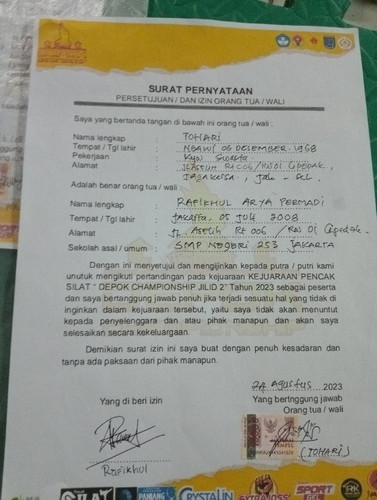 SURAT PERNYATAAN
PERSETUJUAN / DAN IZIN ORANG TUA / WALI
Saya yang bertanda tangan di bawah ini orang tua / wali :
Nama lengkap : TOHARI
Tempat / Tgl lahir : NGAWI 06 DESEMBER 1968
Pekerjaan : Kyw Swasta
Alamat : Jl ASELIH Rt 006 / RW 01 Cipedak,
JAGAKARSA, Jak - Sel.
Adalah benar orang tua / wali :
Nama lengkap : RAFIKHUL ARYA PERMADI
Tempat / Tgl lahir : Jakarta, 05 Juli 2008
Alamat : Jl Aselih Rt 006 / RW 01 Cipedak.
Sekolah asal / umum : SMP NEGERI 253 JAKARTA
Dengan ini menyetujui dan mengijinkan kepada putera / putri kami
unutuk mengikuti pertandingan pada kejuaraan KEJUARAAN PENCAK
SILAT " DEPOK CHAMPIONSHIP JILID 2" Tahun 2023 sebagai peserta
dan saya bertanggung jawab penuh jika terjadi sesuatu hal yang tidak di
inginkan dalam kejuaraan tersebut, yaitu saya tidak akan menuntut
kepada penyelenggara dan atau pihak manapun dan akan saya
selesaikan secara kekeluargaan.
Demikian surat izin ini saya buat dengan penuh kesadaran dan
tanpa ada paksaan dari pihak manapun.
24 Agustus 2023
Yang di beri izin
Yang bertnggung jawab
Orang tua / wali
Rafikhul
(TOHARI)
SILAT
CRYSTALIN
EXTRAJOSS
SPORT